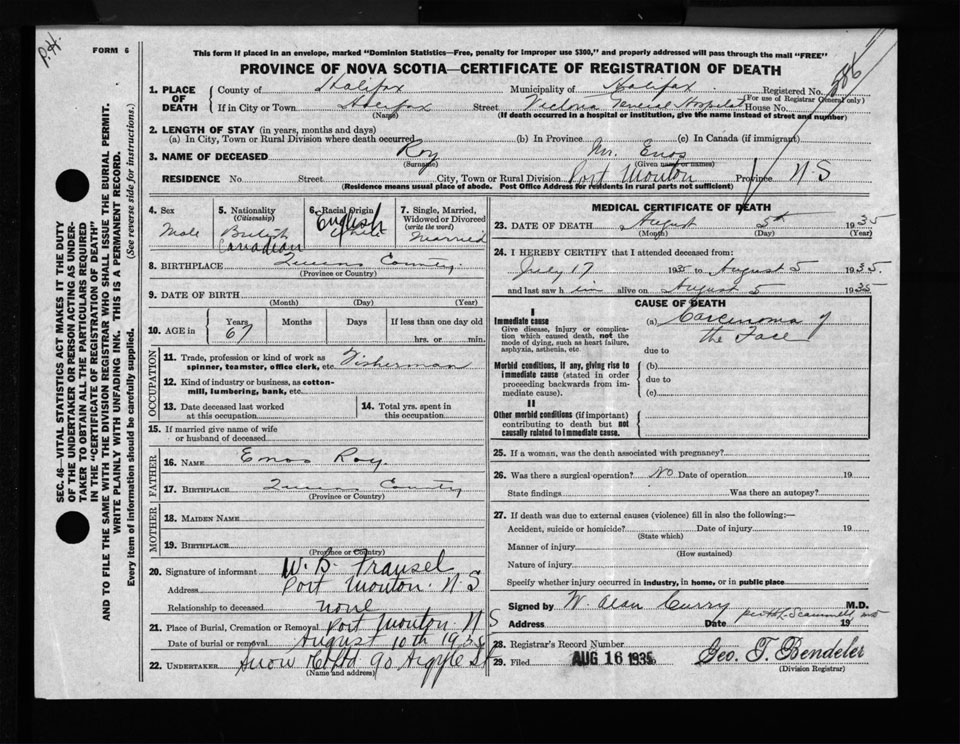 P.H.
FORM 6
This form if placed in an envelope, marked "Dominion Statistics—Free, penalty for improper use $300," and properly addressed will pass through the mail "FREE"
PROVINCE OF NOVA SCOTIA—CERTIFICATE OF REGISTRATION OF DEATH
586
1. PLACE OF DEATH
County of Halifax Municipality of Halifax Registered No.
(For use of Registrar General only)
If in City or Town Halifax Street Victoria General Hospital House No.
(Name) (If death occurred in a hospital or institution, give the name instead of street and number)
2. LENGTH OF STAY (in years, months and days)
(a) In City, Town or Rural Division where death occurred (b) In Province (c) In Canada (if immigrant)
3. NAME OF DECEASED Roy Mr. Enos
(Surname) (Given name or names)
RESIDENCE No. Street City, Town or Rural Division Port Mouton Province N-S
(Residence means usual place of abode. Post Office Address for residents in rural parts not sufficient)
4. Sex
Male
5. Nationality
(Citizenship)
British
Canadian
6. Racial Origin
English
7. Single, Married, Widowed or Divorced
(write the word)
Married
8. BIRTHPLACE Queens County.
(Province or Country)
9. DATE OF BIRTH
(Month) (Day) (Year)
10. AGE in Years Months Days If less than one day old
67 hrs. or min.
OCCUPATION
11. Trade, profession or kind of work as
spinner, teamster, office clerk, etc. Fisherman
12. Kind of industry or business, as cotton-
mill, lumbering, bank, etc.
13. Date deceased last worked
at this occupation
14. Total yrs. spent in
this occupation
15. If married give name of wife
or husband of deceased
FATHER
16. NAME Enos Roy.
17. BIRTHPLACE Queens County
(Province or Country)
MOTHER
18. MAIDEN NAME
19. BIRTHPLACE
(Province or Country)
20. Signature of informant W. B.
Address Port Mouton. N-S
Relationship to deceased none
21. Place of Burial, Cremation or Removal Port Mouton. N S
Date of burial or removal August 10th 1935
22. UNDERTAKER Snow Co Ltd 90 Argyle St
(Name and address)
MEDICAL CERTIFICATE OF DEATH
23. DATE OF DEATH August 5th 1935
(Month) (Day) (Year)
24. I HEREBY CERTIFY that I attended deceased from:
July 17 1935 to August 5 1935.
and last saw him alive on August 5 1935
CAUSE OF DEATH
I
Immediate cause
Give disease, injury or complica-
tion which caused death, not the
mode of dying, such as heart failure,
asphyxia, asthenia, etc.
(a) Carcinoma of
the Face
due to
Morbid conditions, if any, giving rise to
immediate cause (stated in order
proceeding backwards from im-
mediate cause).
(b)
due to
(c)
II
Other morbid conditions (if important)
contributing to death but not
causally related to immediate cause.
25. If a woman, was the death associated with pregnancy?
26. Was there a surgical operation? No Date of operation 19
State findings Was there an autopsy?
27. If death was due to external causes (violence) fill in also the following:—
Accident, suicide or homicide? Date of injury 19
(State which)
Manner of injury
(How sustained)
Nature of injury
Specify whether injury occurred in industry, in home, or in public place
Signed by W. Alan Curry M.D.
Address Date 19
28. Registrar's Record Number
29. Filed AUG 16 1935 Geo. T. Bendeler
(Division Registrar)
SEC. 46—VITAL STATISTICS ACT MAKES IT THE DUTY
OF THE UNDERTAKER OR PERSON ACTING AS UNDER-
TAKER TO OBTAIN ALL THE PARTICULARS REQUIRED
IN THE "CERTIFICATE OF REGISTRATION OF DEATH"
AND TO FILE THE SAME WITH THE DIVISION REGISTRAR WHO SHALL ISSUE THE BURIAL PERMIT.
WRITE PLAINLY WITH UNFADING INK. THIS IS A PERMANENT RECORD.
Every item of information should be carefully supplied. (See reverse side for instructions.)